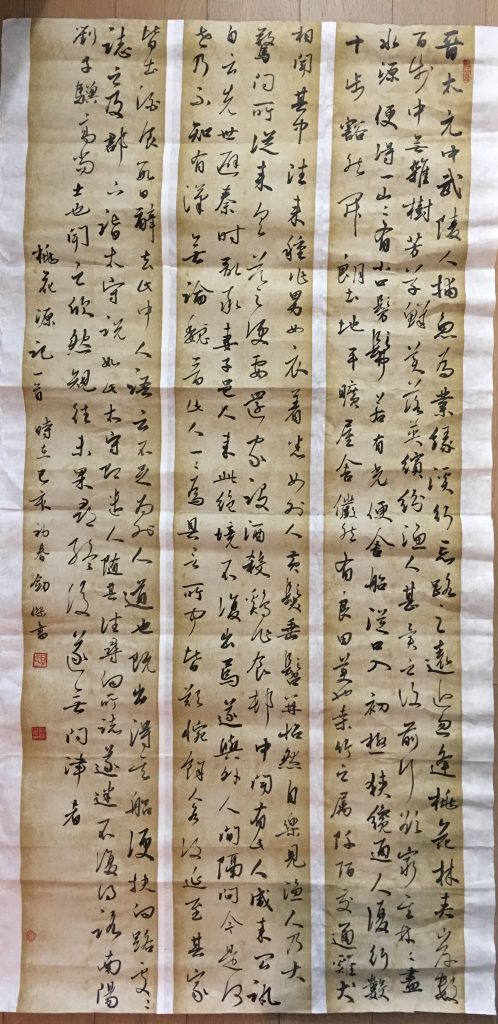 晋太元中武陵人捕魚為業緣溪行忘路之遠近忽逢桃花林夾岸數
百步中無雜樹芳草鮮美落英繽紛漁人甚異之復前行欲窮其林々盡
水源便得一山々有小口髣髴若有光便舍船從口入初極狹纔通人復行數
十步豁然開朗土地平曠屋舍儼然有良田美池桑竹之屬阡陌交通雞犬
相聞其中往來種作男女衣著悉如外人黃髮垂髫並怡然自樂見漁人乃大
驚問所從來具答之便要還家設酒殺雞作食村中聞有此人咸來問訊
自云先世避秦時亂率妻子邑人來此絕境不復出焉遂與外人間隔問今是何
世乃不知有漢無論魏晉此人一一為具言所聞皆歎惋餘人各復延至其家
皆出酒食數日辭去此中人語云不足為外人道也既出得其船便扶向路處々
誌之及郡下詣太守說如此太守即遣人隨其往尋向所誌遂迷不復得路南陽
劉子驥高尚士也聞之欣然規往未果尋終後遂無問津者
桃花源記一首 時在己亥初春劍書